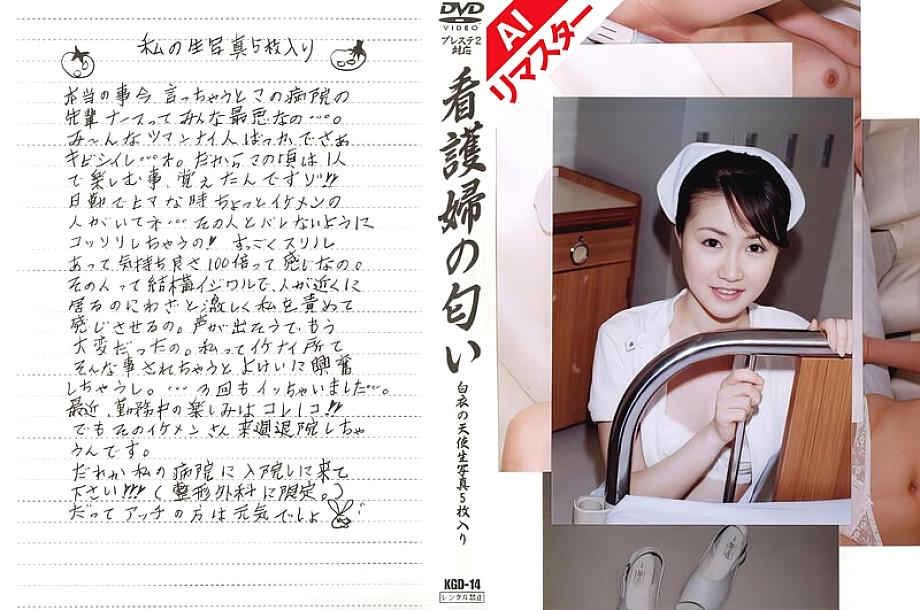 私の生写真5枚入り
本当の事今、言っちゃうとこの病院の
先輩ナースってみんな最悪なの…。
み〜んなツマンナイ人ばっかでさぁ
キビシイし…ネ。だからこの頃は1人
で楽しむ事、覚えたんですヨ!!
日勤でヒマな時ちょっとイケメンの
人がいてネ…その人とバレないように
コッソリしちゃうの!! すっごくスリル
あって気持ち良さ100倍って感じなの。
その人って結構イジワルで、人が近くに
居るのにわざと激しく私を責めて
感じさせるの。声が出そうでもう
大変だったの。私ってイケナイ所で
そんな事されちゃうとよけいに興奮
しちゃうし。…何回もイッちゃいました…。
最近、勤務中の楽しみはコレ!コ!!
でもそのイケメンさん来週退院しちゃ
うんです。
だれか私の病院に入院しに来て
下さい!!!(整形外科に限定。)
だってアッチの方は元気でしょ
DVD
VIDEO
プレステ2
対応
看護婦の匂い
白衣の天使生写真5枚入り
KGD-14
レンタル禁止
AI
リマスター